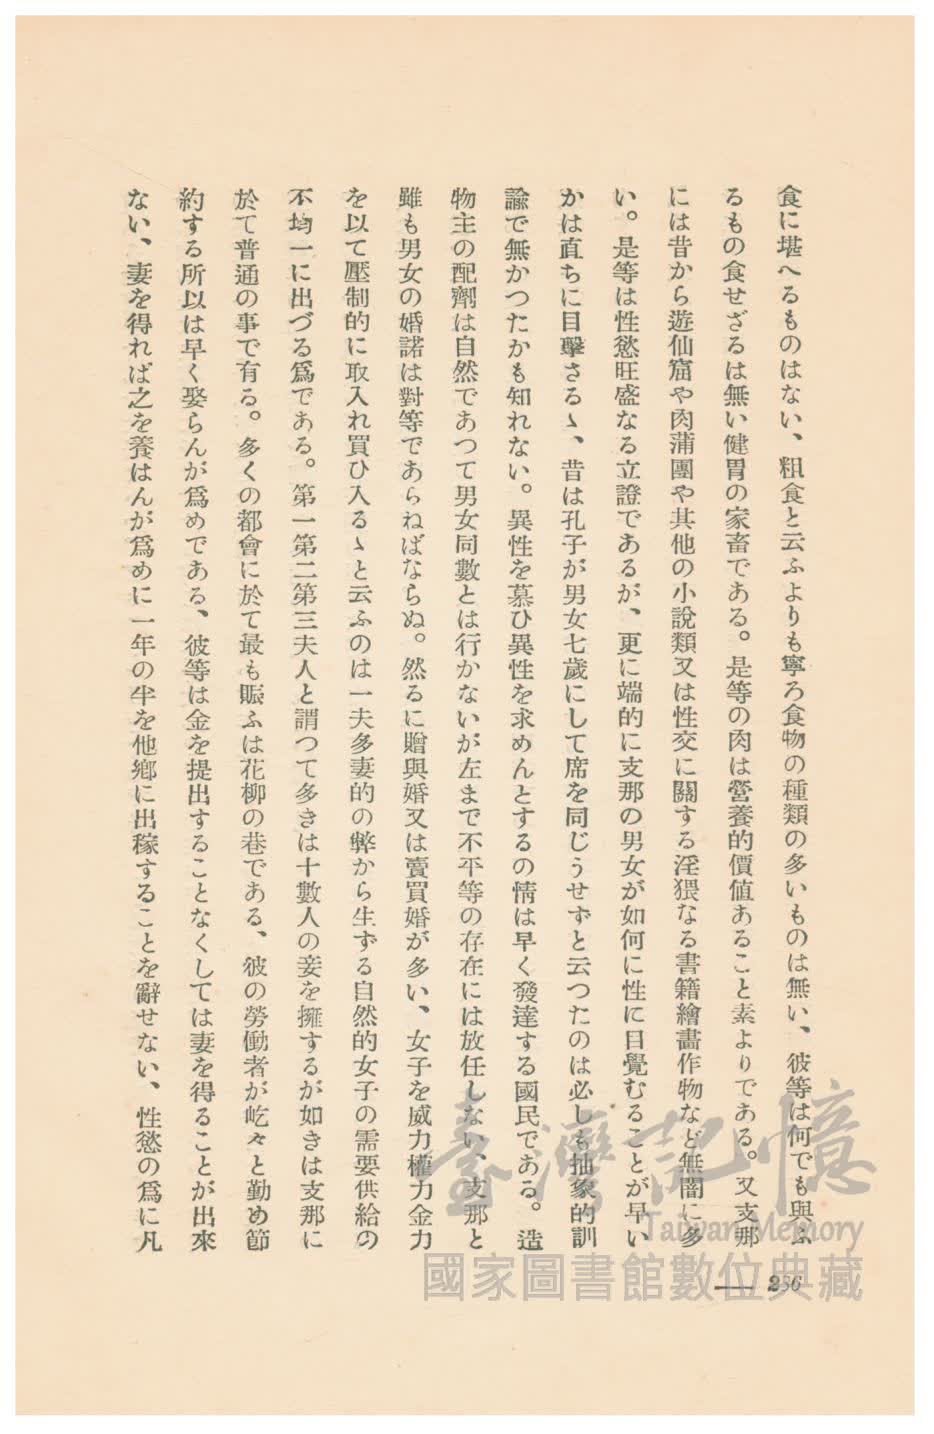 食に堪へるものはない、粗食と云ふよりも寧ろ食物の種類の多いものは無い、彼等は何でも與ふ
るもの食せざるは無い健胃の家畜である。是等の肉は營養的價値あること素よりである。又支那
には昔から遊仙窟や肉蒲團や其他の小說類又は性交に關する淫猥なる書籍繪畵作物など無闇に多
い。是等は性慾旺盛なる立證であるが、更に端的に支那の男女が如何に性に目覺むることが早い
かは直ちに目擊さるゝ、昔は孔子が男女七歲にして席を同じうせずと云つたのは必しも抽象的訓
諭で無かつたかも知れない。異性を慕ひ異性を求めんとするの情は早く發達する國民である。造
物主の配劑は自然であつて男女同數とは行かないが左まで不平等の存在には放任しない、支那と
雖も男女の婚諾は對等であらねばならぬ。然るに贈與婚又は賣買婚が多い、女子を威力權力金力
を以て壓制的に取入れ買ひ入るゝと云ふのは一夫多妻的の弊から生ずる自然的女子の需要供給の
不均一に出づる爲である。第一第二第三夫人と謂つて多きは十數人の妾を擁するが如きは支那に
於て普通の事で有る。多くの都會に於て最も賑ふは花柳の巷である、彼の勞働者が屹々と勤め節
約する所以は早く娶らんが爲めである、彼等は金を提出することなくしては妻を得ることが出來
ない、妻を得れば之を養はんが爲めに一年の半を他鄕に出稼することを辭せない、性慾の爲に凡
236
臺灣記憶
Taiwan Memory
國家圖書館數位典藏